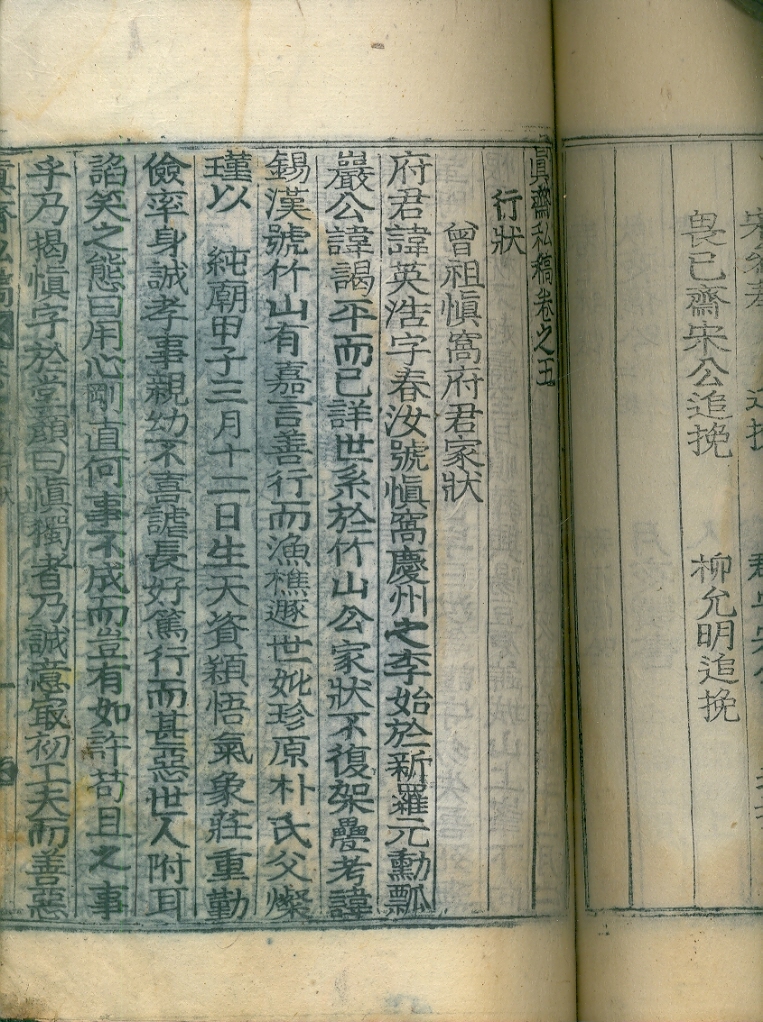 畏已齋宋公追挽　柳允明追挽
眞齋私稿卷之五
行狀
曾祖愼窩府君家狀
府君諱英浩字春汝號愼窩慶州之李始於新羅元勳瓢
巖公諱謁平而已詳世系於竹山公家狀不復架疊考諱
錫漢號竹山有嘉言善行而漁樵遯世妣珍原朴氏父燦
瑾以　純廟甲子三月十二日生天資穎悟氣象莊重勤
儉率身誠孝事親幼不喜謔長好篤行而甚惡世人附耳
諂笑之態曰用心剛直何事不成而豈有如許苟且之事
乎乃揭愼字於堂顔曰愼獨者乃誠意冣初工夫而善惡